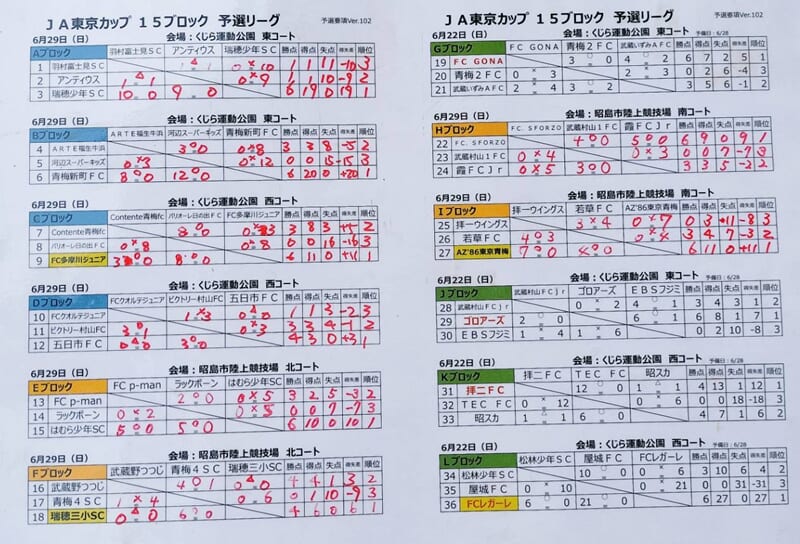 JA東京カップ 15ブロック 予選リーグ 予選要項Ver.102
6月29日(日) 会場：くじら運動公園 東コート
Aブロック 羽村富士見SC アンティウス 瑞穂少年SC 勝点 得点 失点 得失差 順位
1 羽村富士見SC 1 △ 1 0 × 10 1 1 11 -10 3
2 アンティウス 1 △ 1 0 × 9 1 1 10 -9 2
3 瑞穂少年SC 10 ○ 0 9 ○ 0 6 19 0 19 1
6月29日(日) 会場：くじら運動公園 東コート
Bブロック ARTE福生牛浜 河辺スーパーキッズ 青梅新町FC 勝点 得点 失点 得失差 順位
4 ARTE福生牛浜 3 ○ 0 0 × 8 3 3 8 -5 2
5 河辺スーパーキッズ 0 × 3 0 × 12 0 0 15 -15 3
6 青梅新町FC 8 ○ 0 12 ○ 0 6 20 0 +20 1
6月29日(日) 会場：くじら運動公園 西コート
Cブロック Contente青梅fc バリオーレ日の出FC FC多摩川ジュニア 勝点 得点 失点 得失差 順位
7 Contente青梅fc 8 ○ 0 0 × 3 3 8 3 +5 2
8 バリオーレ日の出FC 0 × 8 0 × 8 0 0 16 -16 3
9 FC多摩川ジュニア 3 ○ 0 8 ○ 0 6 11 0 +11 1
6月29日(日) 会場：くじら運動公園 西コート
Dブロック FCクオルテジュニア ビクトリー村山FC 五日市FC 勝点 得点 失点 得失差 順位
10 FCクオルテジュニア 1 × 3 0 △ 0 1 1 3 -2 3
11 ビクトリー村山FC 3 ○ 1 0 × 3 3 3 4 -1 2
12 五日市FC 0 △ 0 3 ○ 0 4 3 0 +3 1
6月29日(日) 会場：昭島市陸上競技場 北コート
Eブロック FC p-man ラックボーン はむら少年SC 勝点 得点 失点 得失差 順位
13 FC p-man 2 ○ 0 0 × 5 3 2 5 -3 2
14 ラックボーン 0 × 2 0 × 5 0 0 7 -7 3
15 はむら少年SC 5 ○ 0 5 ○ 0 6 10 0 10 1
6月29日(日) 会場：昭島市陸上競技場 北コート
Fブロック 武蔵野つつじ 青梅4SC 瑞穂三小SC 勝点 得点 失点 得失差 順位
16 武蔵野つつじ 4 ○ 1 0 △ 0 4 4 1 3 2
17 青梅4SC 1 × 4 0 × 6 0 1 10 -9 3
18 瑞穂三小SC 0 △ 0 6 ○ 0 4 6 0 6 1
JA東京カップ 15ブロック 予選リーグ 予選要項Ver.102
6月22日(日) 会場：くじら運動公園 東コート 予備日：6/28
Gブロック FC GONA 青梅2FC 武蔵いずみAFC 勝点 得点 失点 得失差 順位
19 FC GONA 3 ○ 0 4 ○ 2 6 7 2 5 1
20 青梅2FC 0 × 3 2 × 3 0 2 6 -4 3
21 武蔵いずみAFC 2 × 4 3 ○ 2 3 5 6 -1 2
6月29日(日) 会場：昭島市陸上競技場 南コート
Hブロック FC. SFORZO 武蔵村山1FC 霞FCJr 勝点 得点 失点 得失差 順位
22 FC. SFORZO 4 ○ 0 5 ○ 0 6 9 0 9 1
23 武蔵村山1FC 0 × 4 0 × 3 0 0 7 -7 3
24 霞FCJr 0 × 5 3 ○ 0 3 3 5 -2 2
6月29日(日) 会場：昭島市陸上競技場 南コート
Iブロック 拝一ウイングス 若草FC AZ'86東京青梅 勝点 得点 失点 得失差 順位
25 拝一ウイングス 3 × 4 0 × 7 0 3 11 -8 3
26 若草FC 4 ○ 3 0 × 4 3 4 7 -3 2
27 AZ'86東京青梅 7 ○ 0 4 ○ 0 6 11 0 +11 1
6月22日(日) 会場：くじら運動公園 東コート 予備日：6/28
Jブロック 武蔵村山FCjr ゴロアーズ EBSフジミ 勝点 得点 失点 得失差 順位
28 武蔵村山FCjr 0 × 2 4 ○ 1 3 4 3 1 2
29 ゴロアーズ 2 ○ 0 6 ○ 1 6 8 1 7 1
30 EBSフジミ 1 × 4 1 × 6 0 2 10 -8 3
6月22日(日) 会場：くじら運動公園 西コート 予備日：6/28
Kブロック 拝二FC TEC FC 昭スカ 勝点 得点 失点 得失差 順位
31 拝二FC 12 ○ 0 1 △ 1 4 13 1 12 1
32 TEC FC 0 × 12 0 × 6 0 0 18 -18 3
33 昭スカ 1 △ 1 6 ○ 0 4 7 1 6 2
6月22日(日) 会場：くじら運動公園 西コート 予備日：6/28
Lブロック 松林少年SC 屋城FC FCレガーレ 勝点 得点 失点 得失差 順位
34 松林少年SC 10 ○ 0 0 × 6 3 10 6 4 2
35 屋城FC 0 × 10 0 × 21 0 0 31 -31 3
36 FCレガーレ 6 ○ 0 21 ○ 0 6 27 0 27 1